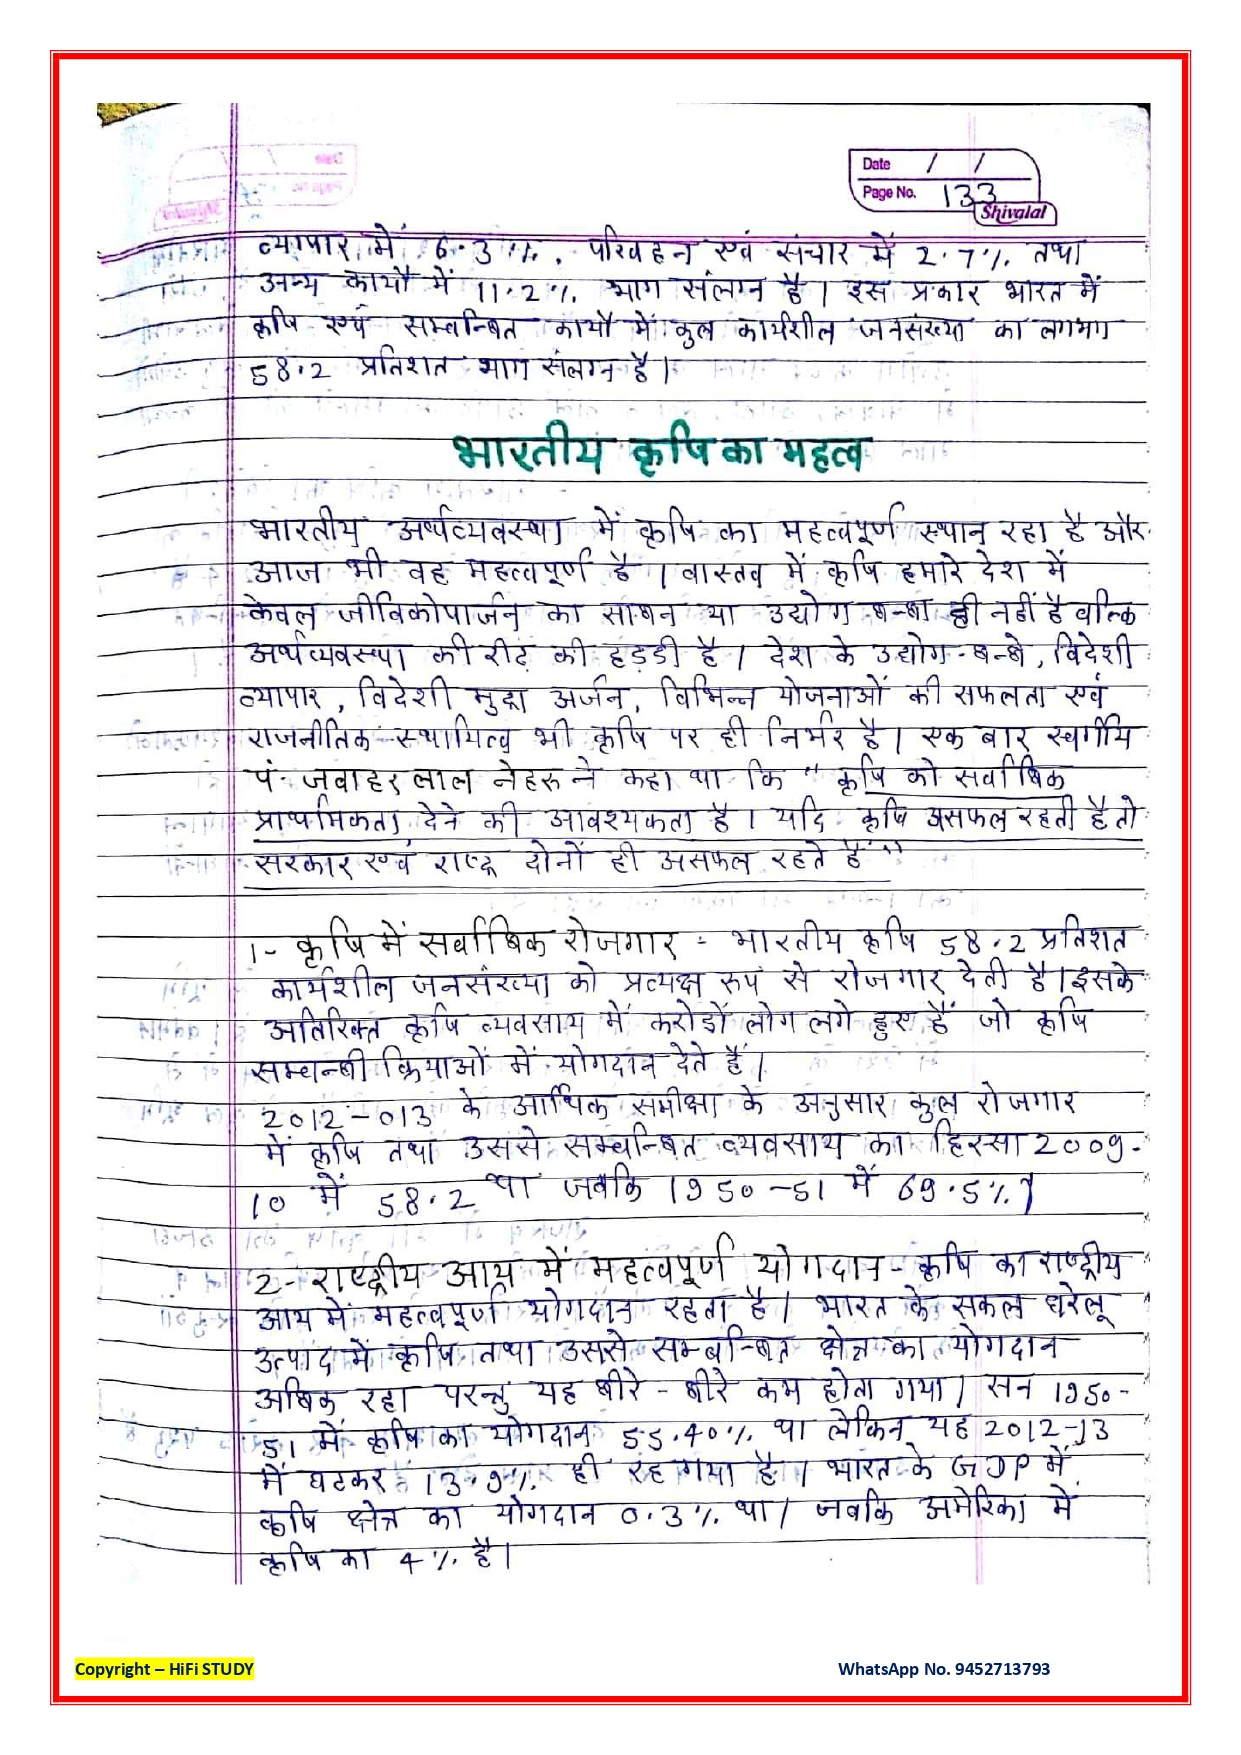 Date / /
Page No. 133
Shivalal
व्यापार में 6.3%, परिवहन एवं संचार में 2.7% तथा
अन्य कार्यों में 11.2% भाग संलग्न है। इस प्रकार भारत में
कृषि एवं सम्बन्धित कार्यों में कुल कार्यशील जनसंख्या का लगभग
58.2 प्रतिशत भाग संलग्न है।
भारतीय कृषि का महत्व
भारतीय अर्थव्यवस्था में कृषि का महत्वपूर्ण स्थान रहा है और
आज भी वह महत्वपूर्ण है। वास्तव में कृषि हमारे देश में
केवल जीविकोपार्जन का साधन या उद्योग धन्धा ही नहीं है बल्कि
अर्थव्यवस्था की रीढ़ की हड्डी है। देश के उद्योग-धन्धे, विदेशी
व्यापार, विदेशी मुद्रा अर्जन, विभिन्न योजनाओं की सफलता एवं
राजनीतिक स्थायित्व भी कृषि पर ही निर्भर है। एक बार स्वर्गीय
पं. जवाहर लाल नेहरू ने कहा था कि "कृषि को सर्वाधिक
प्राथमिकता देने की आवश्यकता है। यदि कृषि असफल रहती है तो
सरकार एवं राष्ट्र दोनों ही असफल रहते हैं"
1- कृषि में सर्वाधिक रोजगार - भारतीय कृषि 58.2 प्रतिशत
कार्यशील जनसंख्या को प्रत्यक्ष रुप से रोजगार देती है। इसके
अतिरिक्त कृषि व्यवसाय में करोड़ों लोग लगे हुए हैं जो कृषि
सम्बन्धी क्रियाओं में योगदान देते हैं।
2012-013 के आर्थिक समीक्षा के अनुसार कुल रोजगार
में कृषि तथा उससे सम्बन्धित व्यवसाय का हिस्सा 2009-
10 में 58.2 था जबकि 1950-51 में 69.5%।
2- राष्ट्रीय आय में महत्वपूर्ण योगदान - कृषि का राष्ट्रीय
आय में महत्वपूर्ण योगदान रहता है। भारत के सकल घरेलू
उत्पाद में कृषि तथा उससे सम्बन्धित क्षेत्र का योगदान
अधिक रहा परन्तु यह धीरे-धीरे कम होता गया। सन 1950-
51 में कृषि का योगदान 55.40% था लेकिन यह 2012-13
में घटकर 13.9% ही रह गया है। भारत के GDP में
कृषि क्षेत्र का योगदान 0.3% था। जबकि अमेरिका में
कृषि का 4% है।
Copyright – HiFi STUDY
WhatsApp No. 9452713793